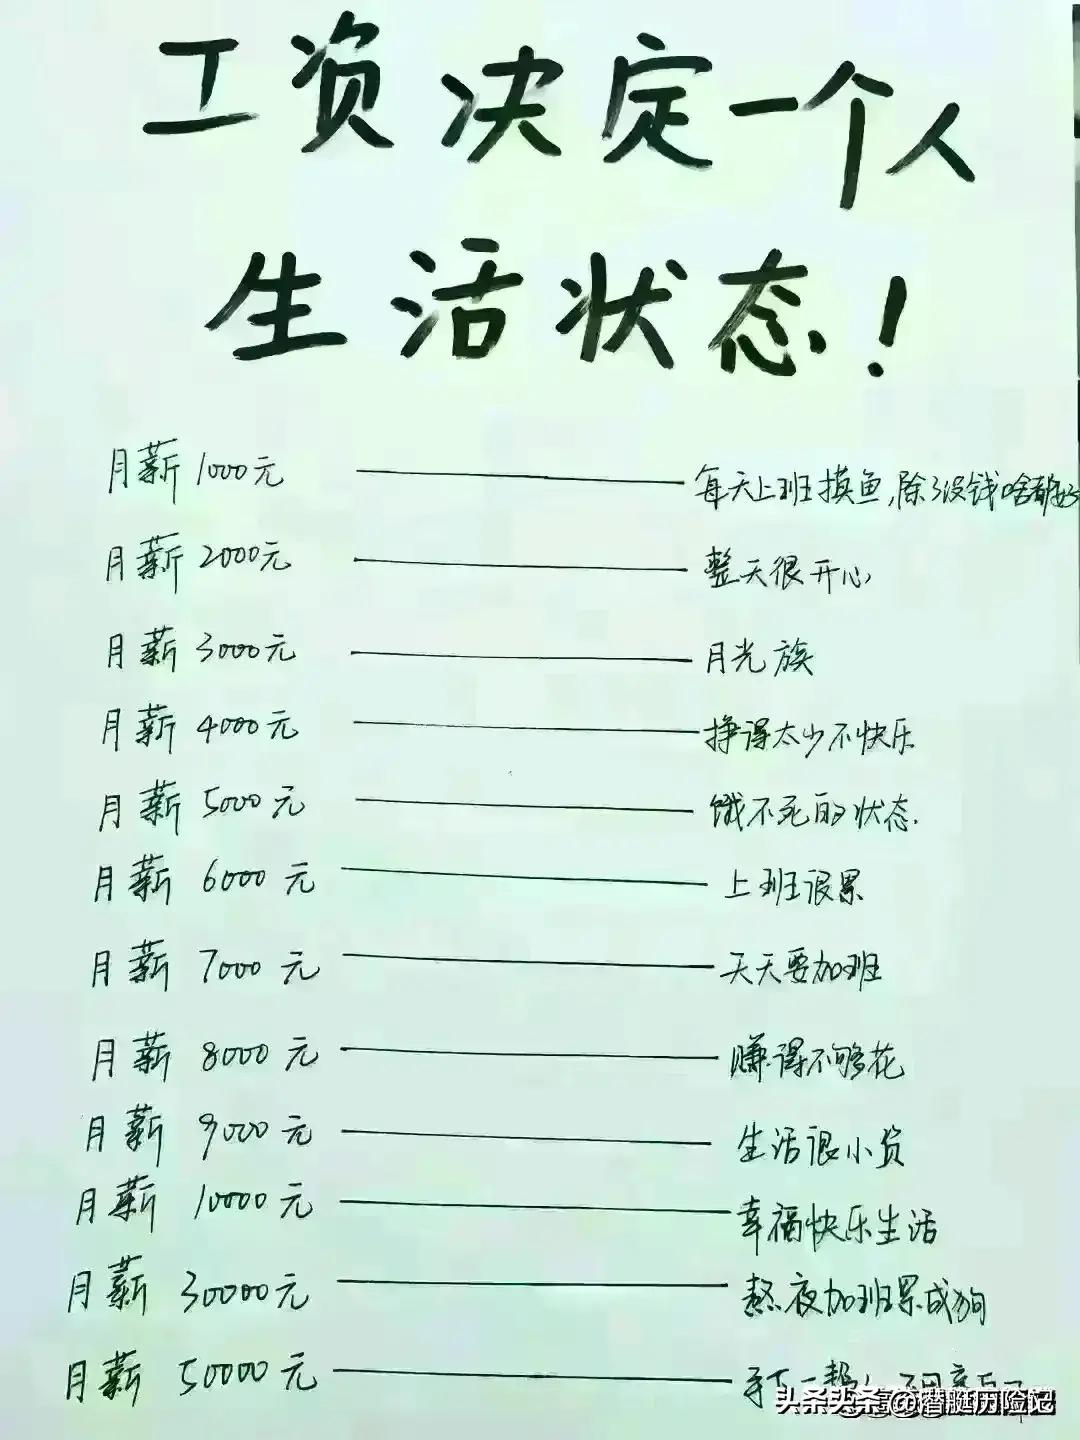 工资决定一个人
生活状态!
月薪 1000元 每天上班摸鱼,除了没钱啥都好
月薪 2000元 整天很开心
月薪 3000元 月光族
月薪 4000元 挣得太少不快乐
月薪 5000元 饿不死的状态.
月薪 6000元 上班很累
月薪 7000元 天天要加班
月薪 8000元 赚得不够花
月薪 9000元 生活很小资
月薪 10000元 幸福快乐生活
月薪 30000元 熬夜加班累成狗
月薪 50000元 手下一帮人
头条头条 @潜艇历险记